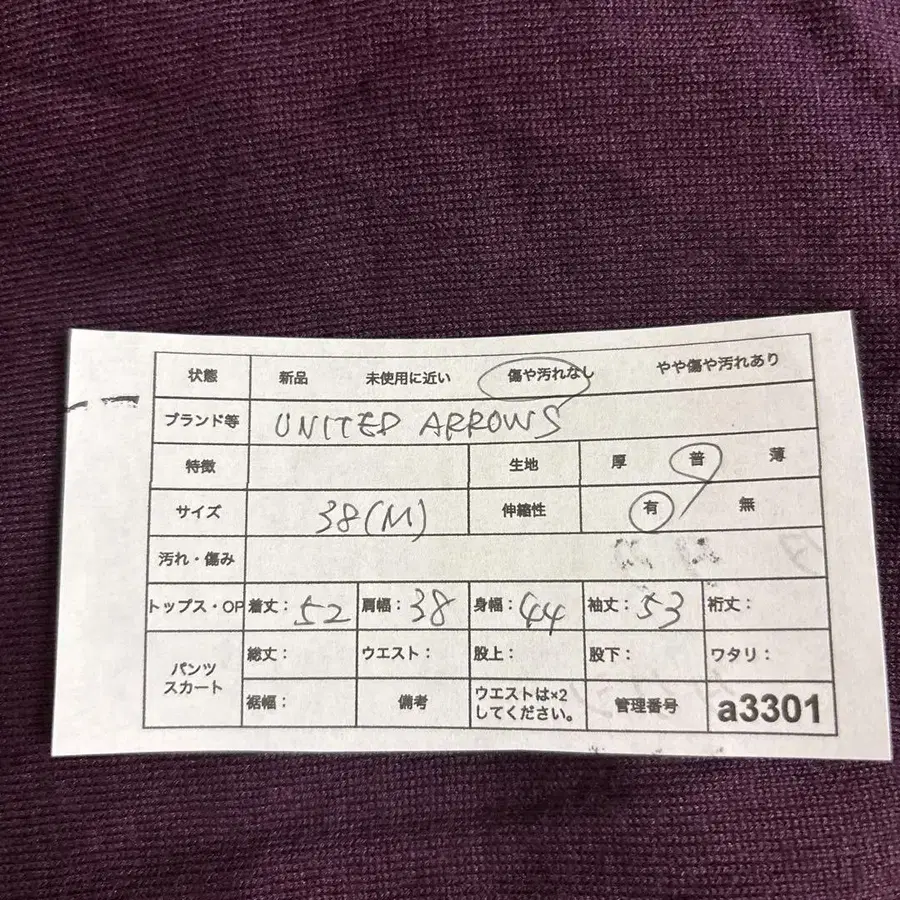 状態 新品 未使用に近い 傷や汚れなし やや傷や汚れあり
ブランド等 UNITED ARROWS
特徴 生地 厚 普 薄
サイズ 38(M) 伸縮性 有 無
汚れ・傷み
トップス・OP 着丈: 52 肩幅: 38 身幅: 44 袖丈: 53 裄丈:
パンツ スカート 総丈: ウエスト: 股上: 股下: ワタリ:
裾幅: 備考 ウエストは×2 してください。 管理番号 a3301